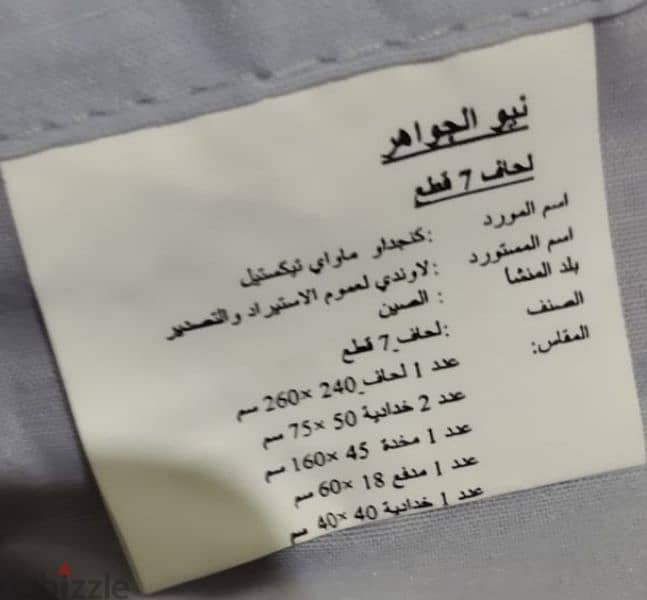 نيو الجواهر
لحاف 7 قطع
اسم المورد :كنجداو ماواي تيكستيل
اسم المستورد :لاوندي لعموم الاستيراد والتصدير
بلد المنشا : الصين
الصنف :لحاف_7 قطع
المقاس: عدد 1 لحاف_240 ×260 سم
عدد 2 خدادية 50 ×75 سم
عدد 1 مخدة 45 ×160 سم
عدد 1 مدفع 18 ×60 سم
عدد 1 خدادية 40 ×40 سم
bizzle